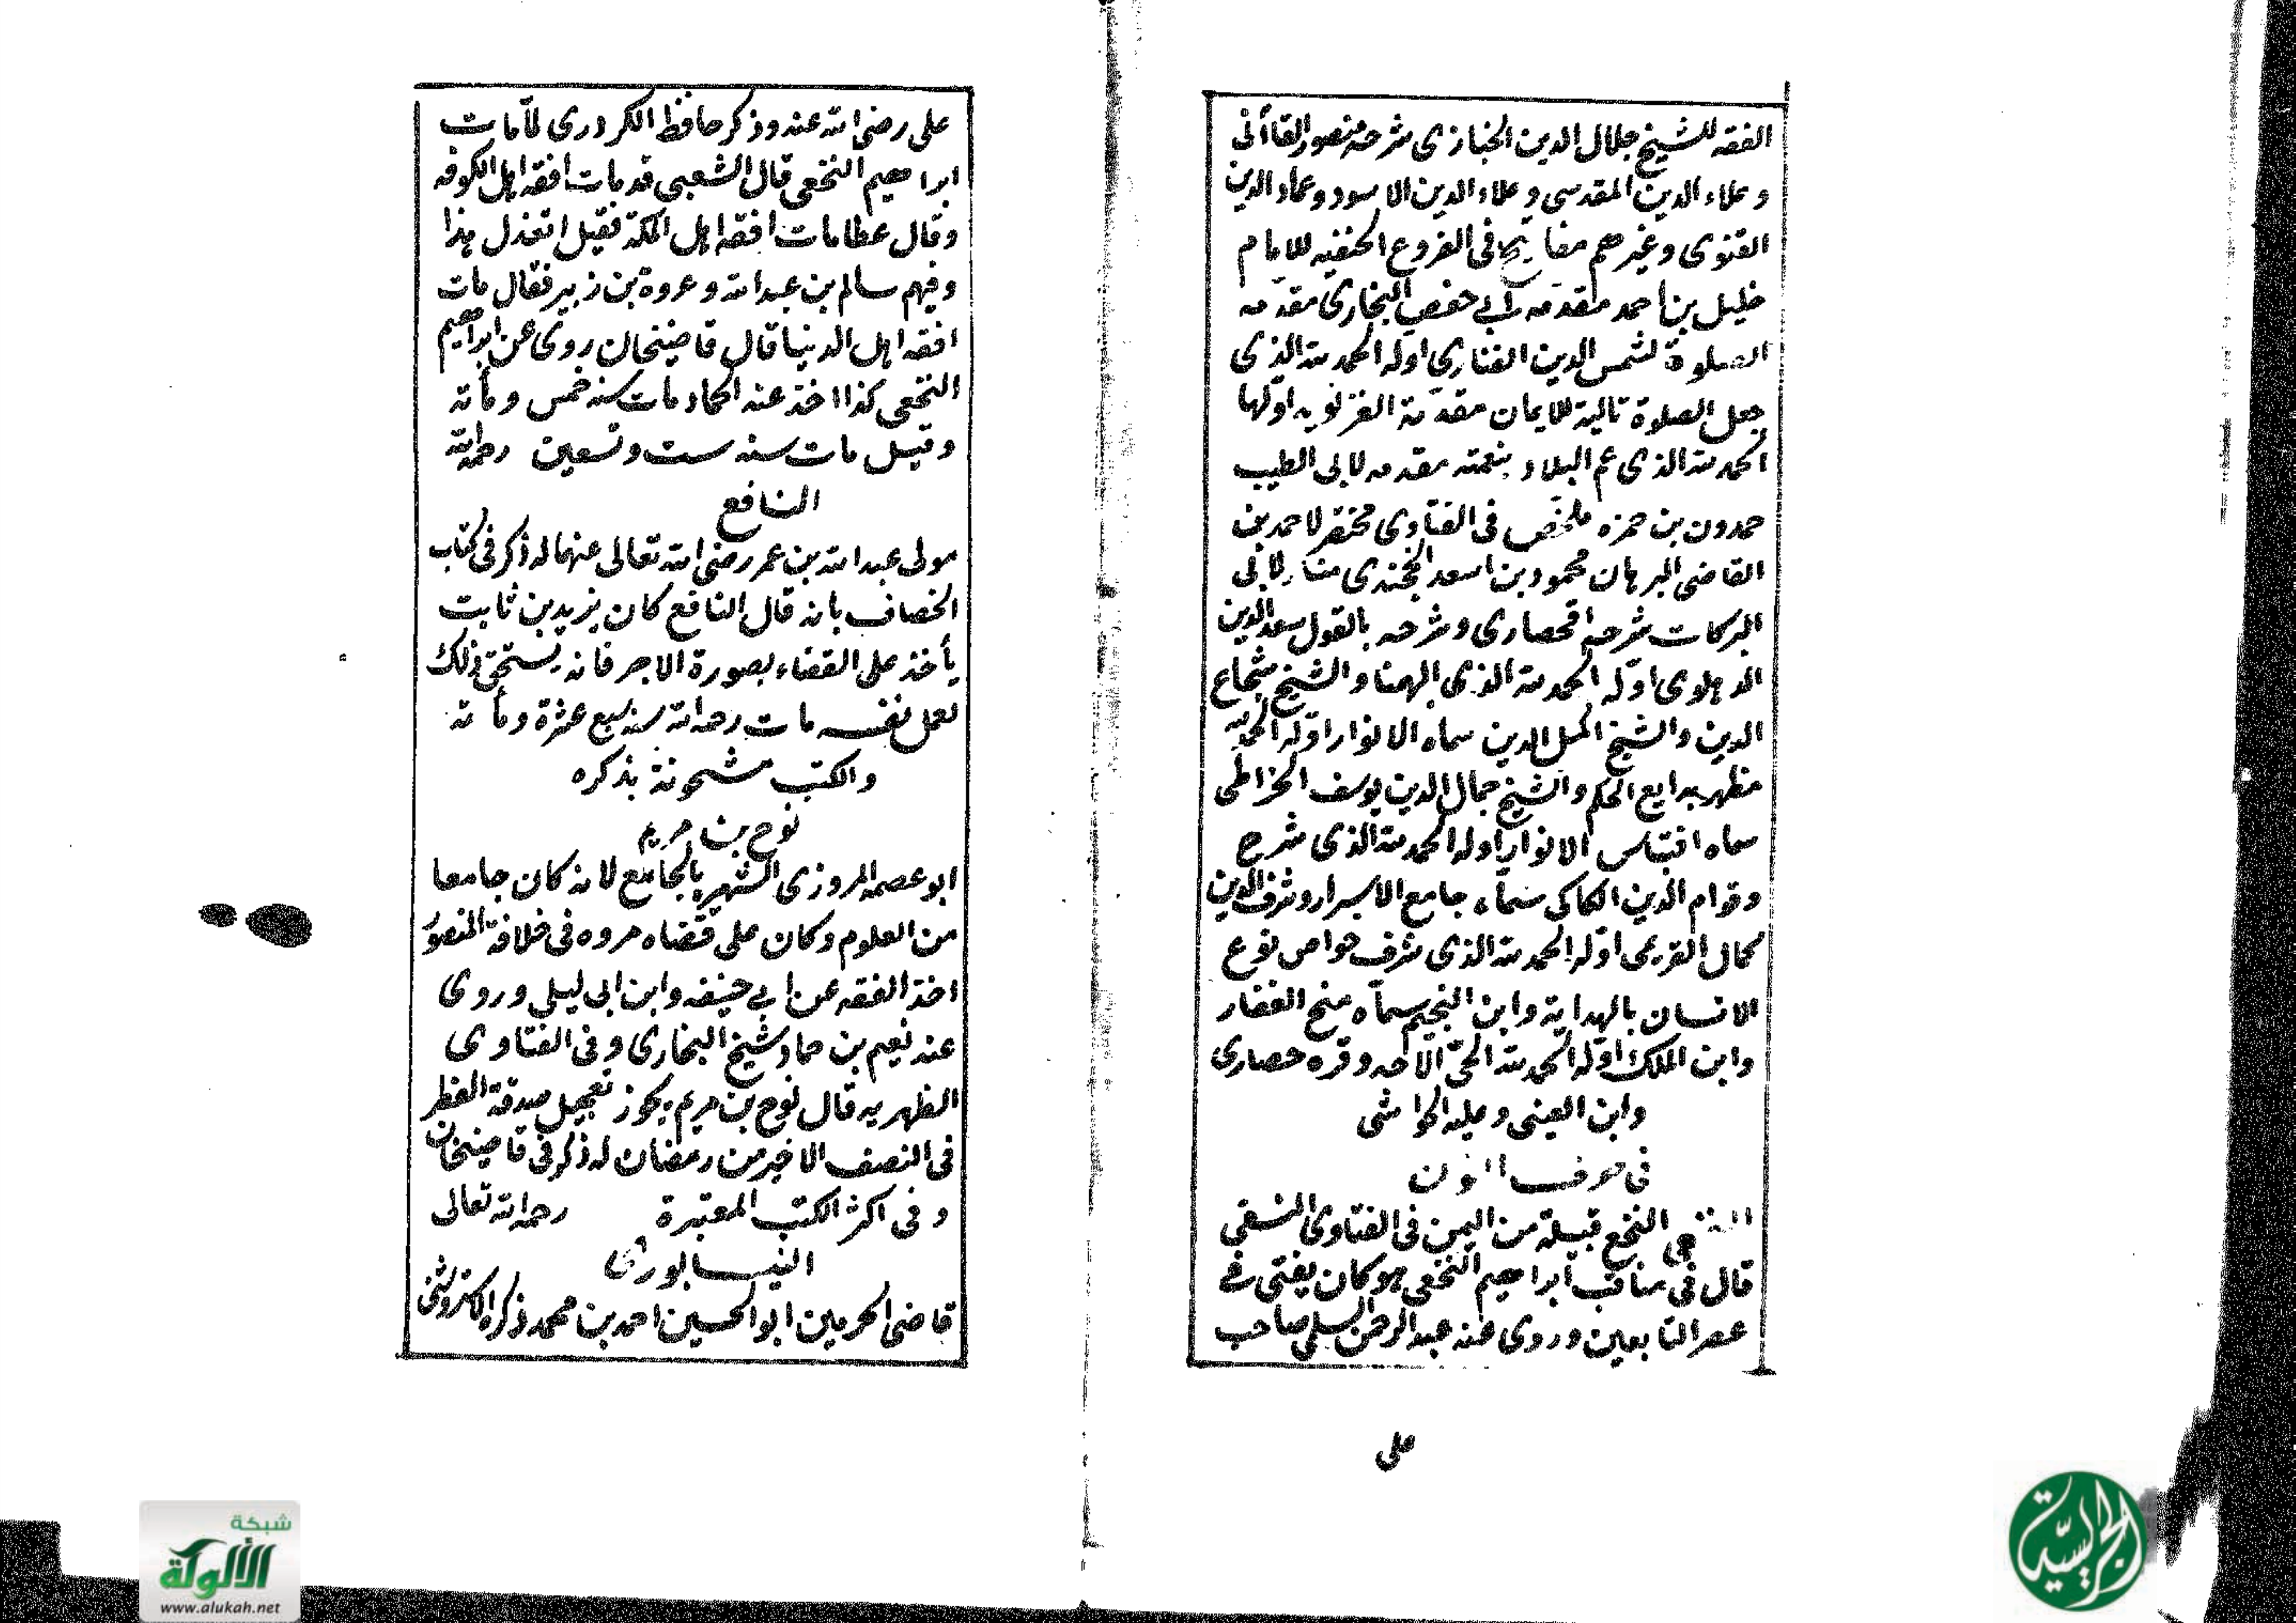 الفقه للشيخ جلال الدين الخبازى شرحه منصور القاآنى
وعلاء الدين المقدسى وعلاء الدين الاسود وعماد الدين
القنوى وغيرهم مفاتيح فى الفروع الحنفيه للامام
خليل بن احمد مقدمه ابي حفص البخارى مقدمه
الصلوة لشمس الدين الفناري اوله الحمد لله الذى
جعل الصلوة تالية للايمان مقدمة الغزنويه اولها
الحمد لله الذى عم البلاد بنعمته مقدمه لابى الطيب
حمدون بن حمزه ملخص فى الفتاوى مختصر لاحمد بن
القاضى البرهان محمود بن اسعد الخجندى منار لابى
البركات شرحه اقحصارى وشرحه بالقول سعد الدين
الدهلوى اوله الحمد لله الذى الهمنا والشيخ شجاع
الدين والشيخ اكمل الدين سماه الانوار اوله الحمد لله
مظهر بدايع الحكم والشيخ جمال الدين يوسف الخراطى
سماه اقتباس الانوار اوله الحمد لله الذى شرح
وقوام الدين الكاكى سماه جامع الاسرار وشرف الدين
كمال القريمى اوله الحمد لله الذى شرف خواص نوع
الانسان بالهداية وابن النجيم سماه منح الغفار
وابن الملك اوله الحمد لله الحق الاحد وقره حصارى
وابن العينى وعليه الحواشى
فى حرف النون
النخعى النخع قبيلة من اليمن فى الفتاوى النسفى
قال فى مناقب ابراهيم النخعى هو كان يفتى في
عصر التابعين وروى عنه عبد الرحمن السلمى صاحب
على
على رضى الله عنه وذكر حافظ الكردرى لما مات
ابراهيم النخعى قال الشعبى قد مات افقه اهل الكوفه
وقال عطا مات افقه اهل المكة فقيل اتعذل هذا
وفيهم سالم بن عبد الله وعروة بن زبير فقال مات
افقه اهل الدنيا قال قاضيخان روى عن ابراهيم
النخعى كذا اخذ عنه الحماد مات سنه خمس ومأته
وقيل مات سنه ست وتسعين رحمه الله
النافع
مولى عبد الله بن عمر رضى الله تعالى عنهما له ذكر فى كتاب
الخصاف بانه قال النافع كان يزيد بن ثابت
يأخذ على القضاء بصورة الاجر فانه يستحق ذلك
لعمل نفسه مات رحمه الله سنه سبع عشرة ومأته
والكتب مشحونة بذكره
نوح بن مريم
ابو عصمه المروزى الشهير بالجامع لانه كان جامعا
من العلوم وكان على قضاه مروه فى خلافة المنصور
اخذ الفقه عن ابي حنيفه وابن ابى ليلى وروى
عنه نعيم بن حماد شيخ البخارى وفى الفتاوى
الظهريه قال نوح بن مريم يجوز تعجيل صدقة الفطر
فى النصف الاخير من رمضان له ذكر فى قاضيخان
وفى اكثر الكتب المعتبرة رحمه الله تعالى
النيسابورى
قاضى الحرمين ابو الحسين احمد بن محمد ذكره
شبكة
الألوكة
www.alukah.net